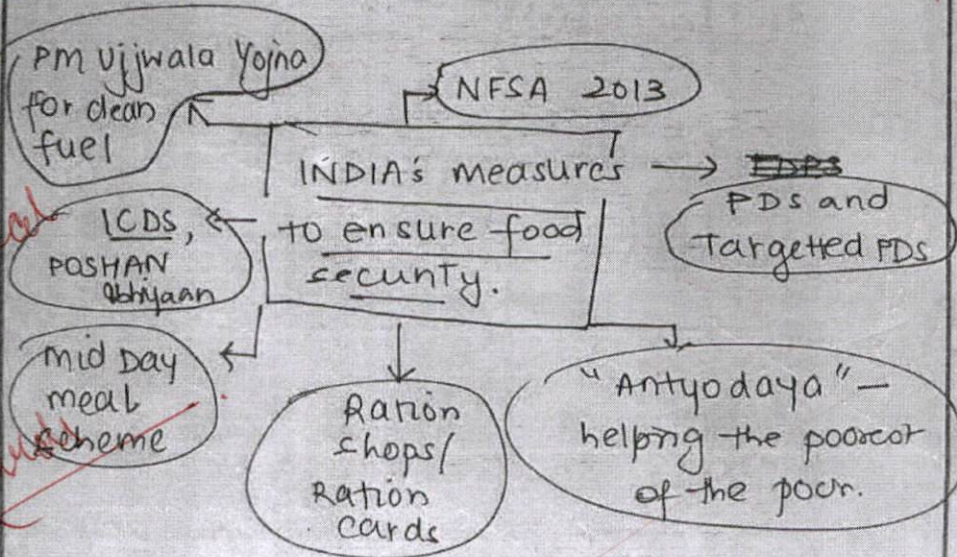 PM Ujjwala Yojna
for clean
fuel
NFSA 2013
INDIA's measures
to ensure food
security.
PDS and
Targetted PDS
ICDS,
POSHAN
abhiyaan
Mid Day
meal
scheme
Ration
shops/
Ration
cards
"Antyodaya" —
helping the poorest
of the poor.